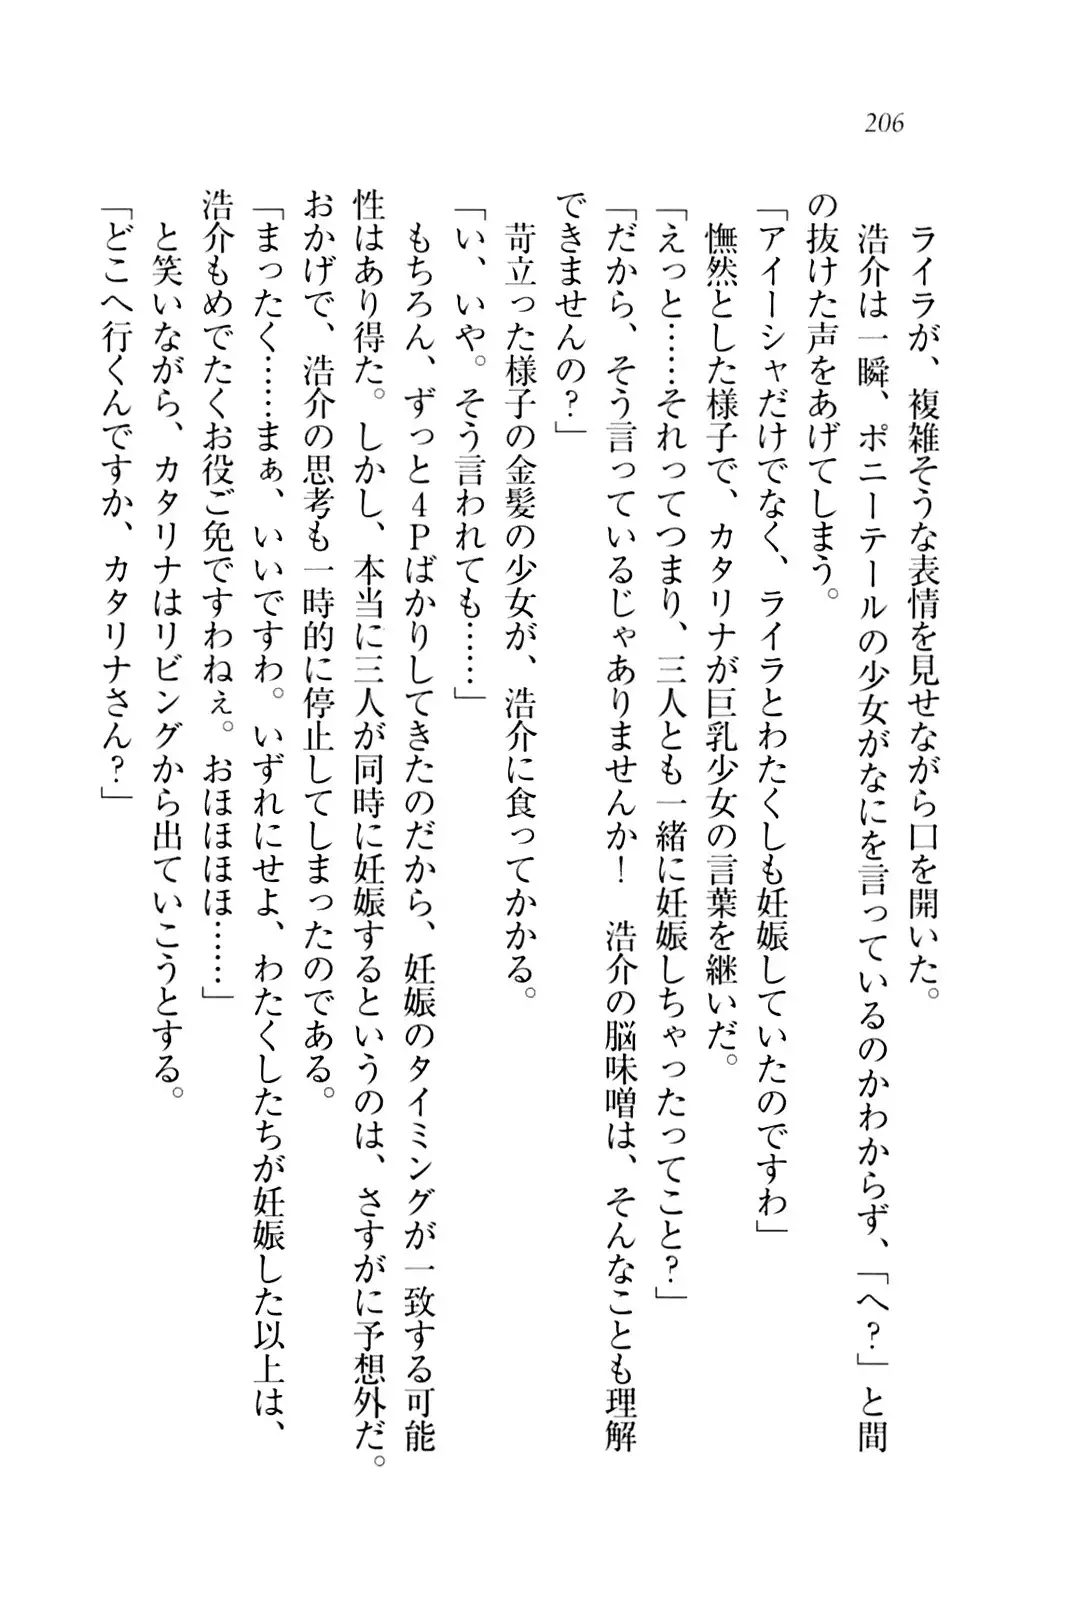 206
ライラが、複雑そうな表情を見せながら口を開いた。
浩介は一瞬、ポニーテールの少女がなにを言っているのかわからず、「へ？」と間
の抜けた声をあげてしまう。
「アイーシャだけでなく、ライラとわたくしも妊娠していたのですわ」
憮然とした様子で、カタリナが巨乳少女の言葉を継いだ。
「えっと……それってつまり、三人とも一緒に妊娠しちゃったってこと？」
「だから、そう言っているじゃありませんか！　浩介の脳味噌は、そんなことも理解
できませんの？」
苛立った様子の金髪の少女が、浩介に食ってかかる。
「い、いや。そう言われても……」
もちろん、ずっと４Ｐばかりしてきたのだから、妊娠のタイミングが一致する可能
性はあり得た。しかし、本当に三人が同時に妊娠するというのは、さすがに予想外だ。
おかげで、浩介の思考も一時的に停止してしまったのである。
「まったく……まぁ、いいですわ。いずれにせよ、わたくしたちが妊娠した以上は、
浩介もめでたくお役ご免ですわねぇ。おほほほほ……」
と笑いながら、カタリナはリビングから出ていこうとする。
「どこへ行くんですか、カタリナさん？」